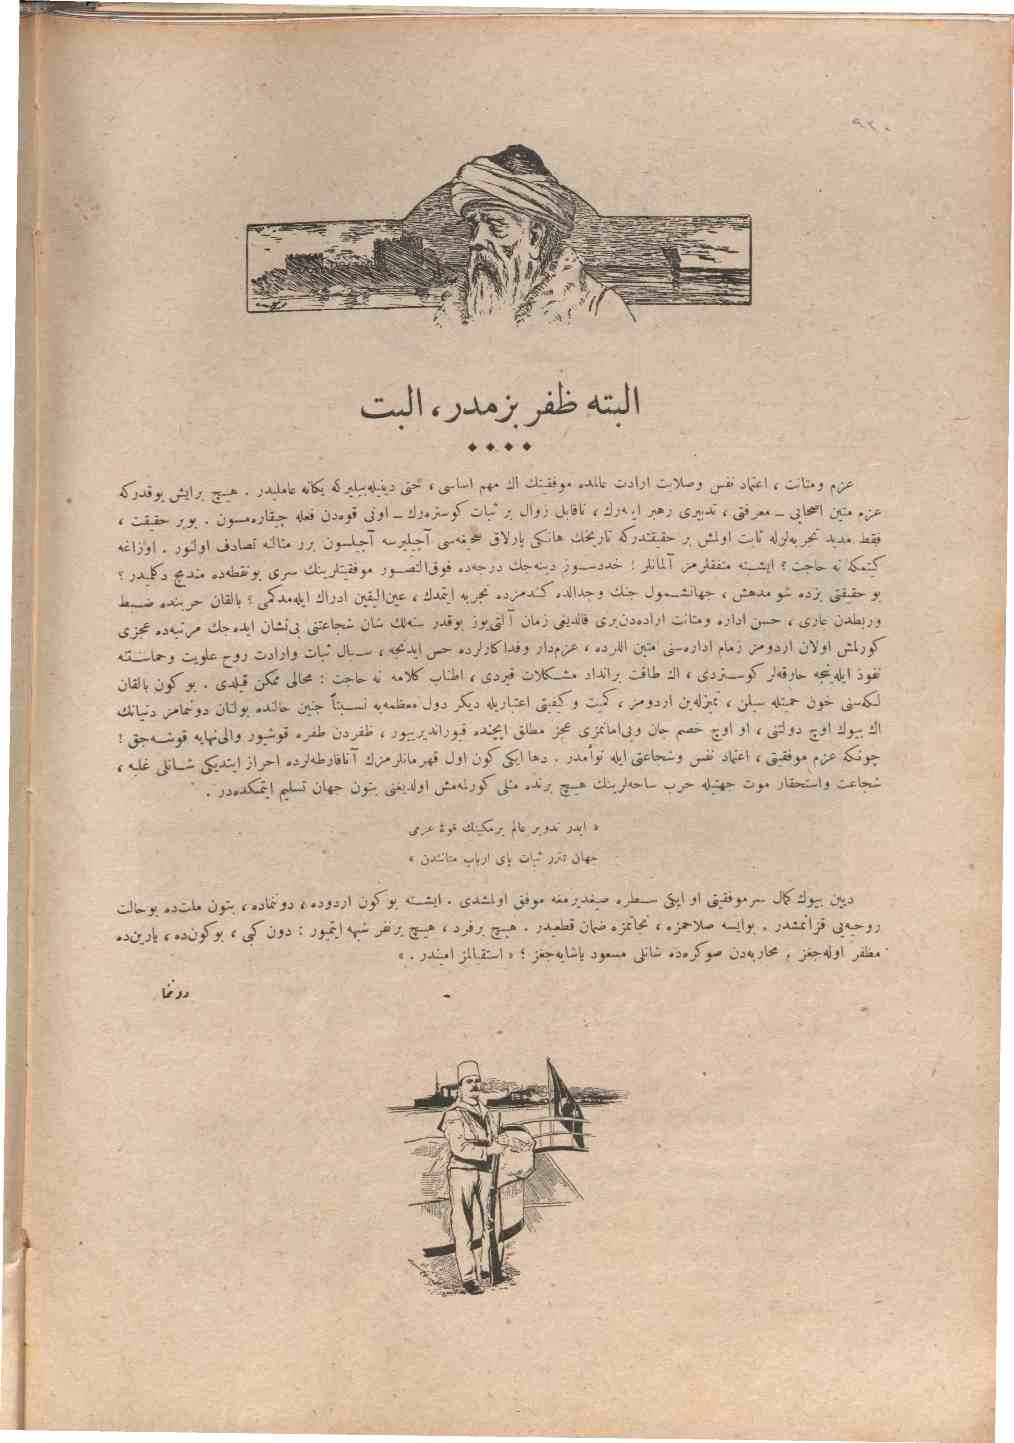 ٩٢٠
البته ظفر بزمدر، البت
عزم ومتانت ، اعتماد نفس وصلابت ارادت عالمده موفقيتك اك مهم اساسى ، حتى دينيله‌بيليركه يكانه عامليدر . هيچ برايش يوقدركه
عزم متين اصحابى ــ معرفتى ، تدبيرى رهبر ايده‌رك ، ناقابل زوال بر ثبات كوستره‌رك ــ اونى قوه‌دن فعله چيقاره‌مسون . بوبر حقيقت ،
فقط مديد تجربه‌لرله ثابت اولمش بر حقيقتدركه تاريخك هانكى پارلاق صحيفه‌سى آچيليرسه آچيلسون برر مثالنه تصادف اولنور . اوزاغه
كيتمكه نه حاجت ؟ ايشته متفقلرمز آلمانلر ! خددسوز دينه‌جك درجه‌ده فوق‌التصور موفقيتلرينك سرى بونقطه‌ده مندمج دكلميدر ؟
بو حقيقتى بزده شو مدهش ، جهانشمول جنك وجدالده كندمزده تجربه ايتمدك ، عين‌اليقين ادراك ايله‌مدكمى ؟ بالقان حربنده ضبط
وربطدن عارى ، حسن اداره ومتانت اراده‌دن‌برى قالديغى زمان آلتى‌يوز بوقدر سنه‌لك شان شجاعتنى بى‌نشان ايده‌جك مرتبه‌ده عجزى
كورلمش اولان اردومز زمام اداره‌سنى متين اللرده ، عزم‌دار وفداكارلرده حس ايدنجه ، سبال ثبات وارادت روح علويت وحماستنه
نفوذ ايله‌ينجه خارقه‌لر كوستردى ، اك طاقت برانداد مشكلات قيردى ، اطناب كلامه نه حاجت : محالى ممكن قيلدى . بو كون بالقان
لكه‌سنى خون حميتله سيلن ، تميزله‌ين اردومز ، كميت و كيفيتى اعتباريله ديكر دول معظمه‌يه نسبتاً جنين حالنده بولنان دوننمامز دنيانك
اك بيوك اوچ دولتنى ، او اوچ خصم جان وبى‌امانمزى عجز مطلق ايچنده قيوراندیریيور ، ظفردن ظفره قوشيور والى‌نهايه قوشه‌جق !
چونكه عزم موفقيتى ، اعتماد نفس وشجاعتى ايله توأمدر . دها ايكى كون اول قهرمانلرمزك آنافارطه‌لرده احراز ايتديكى شانلى غلبه ،
شجاعت واستحقار موت جهتيله حرب ساحه‌لرينك هيچ برنده مثلى كورلمه‌مش اولديغنى بتون جهان تسليم ايتمكده‌در .
« ايدر تدوير عالم برمكينك قوۀ عزمى
جهان تترر ثبات پاى ارباب متانتدن »
ديين بيوك كمال سرموفقيتى او ايكى سطره صيغديرمغه موفق اولمشدى . ايشته بوكون اردوده ، دوننماده ، بتون ملتده بوحالت
روحيه‌يى قزانمشدر . بوايسه صلاحمزه ، نجاتمزه ضمان قطعيدر . هيچ برفرد ، هيچ برنفر شبهه ايتميور : دون كبى ، بوكون‌ده ، يارين‌ده
مظفر اوله‌جغز , محاربه‌دن صوكره‌ده شانلى مسعود ياشايه‌جغز ؛ « استقبالمز اميندر . »
دوننما